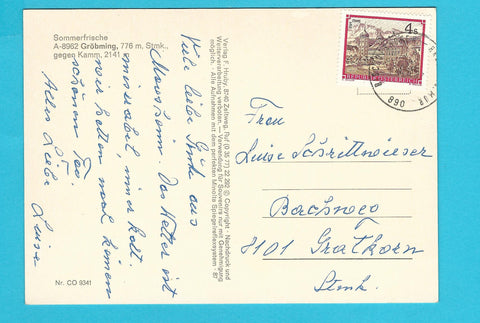 Sommerfrische
A-8962 Gröbming, 776 m, Stmk.,
gegen Kamm, 2141
Viele liebe Grüße aus
Das Wetter ist
miserabel, immer kalt.
wir hatten noch keinen
schönen Tag.
Alles Liebe
Luise
Nr. CO 9341
Verlag F. Hruby, 8740 Zeltweg, Ruf (0 35 77) 22 292 © Copyright - Nachdruck und
Weiterverarbeitung verboten. — Verwendung für Souvenirs nur mit Genehmigung
möglich. - Alle Aufnahmen mit dem perfekten Minolta Spiegelreflexsystem - 87
4 S
REPUBLIK ÖSTERREICH
Frau
Luise Schrittwieser
Bachweg
8101 Gratkorn
Stmk.